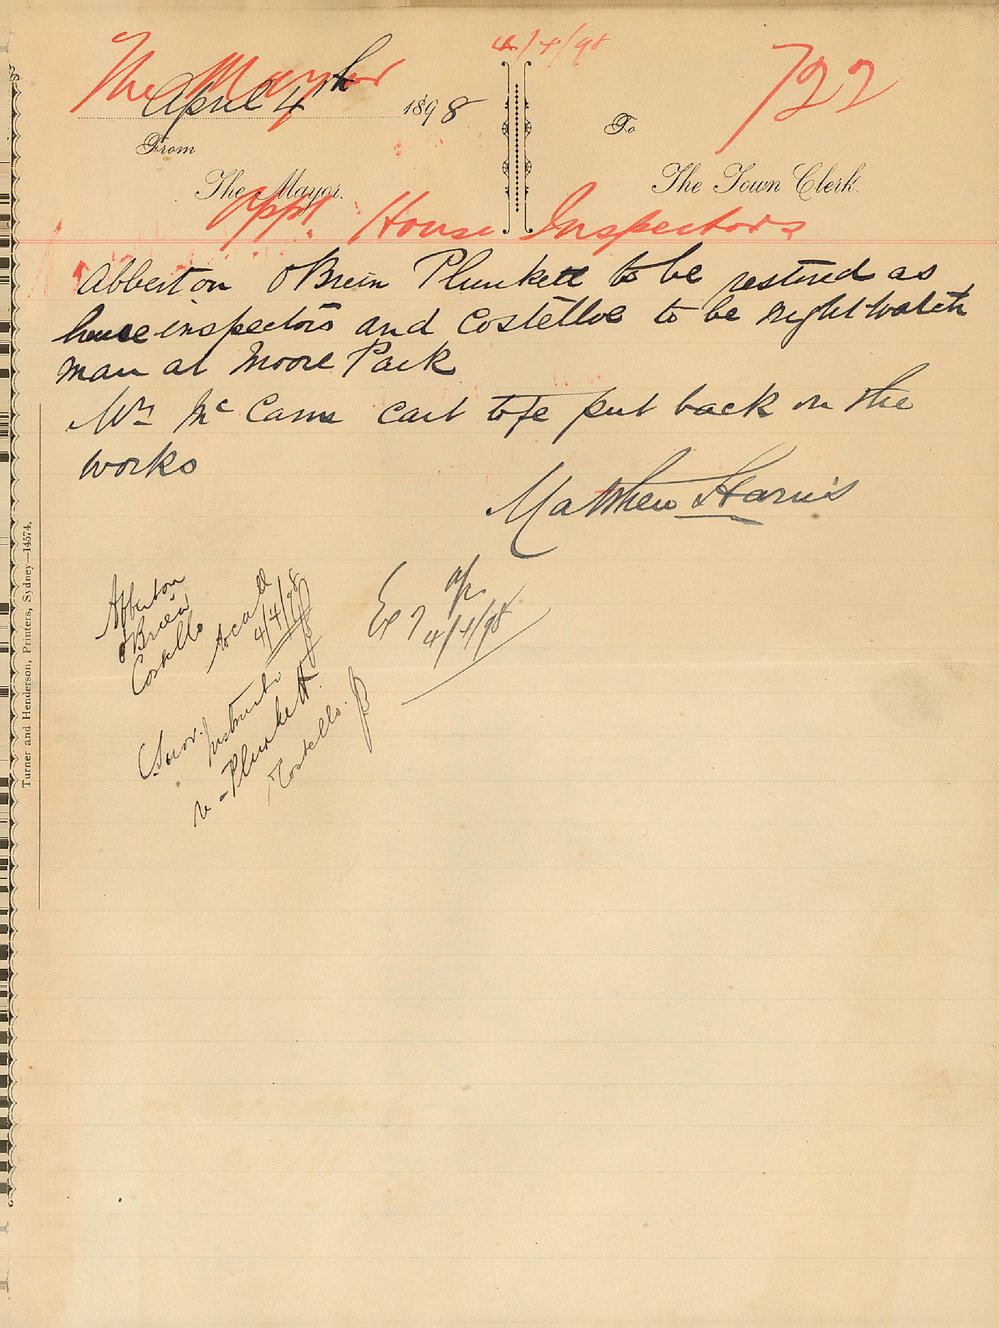 The Mayor
4/4/98
722
April 4th 1898
From
To
The Mayor.
The Town Clerk.
Appt. House Inspectors
Abberton O'Brien Plunkett to be restored as
house inspectors and Costelloe to be night watch
man at Moore Park
Wm McCann cart to be put back on the
works
Matthew Harris
Abberton
O'Brien
Costello
to call
4/4/98
Surv.
Plunkett
Costello.
4/4/98
Turner and Henderson, Printers, Sydney—14574.